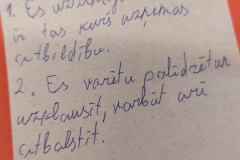 1. Es uzņemos
ir tas kurš uzņemas
atbildību.
2. Es varētu palīdzēt un
uzklausīt, varbūt arī
atbalstīt.